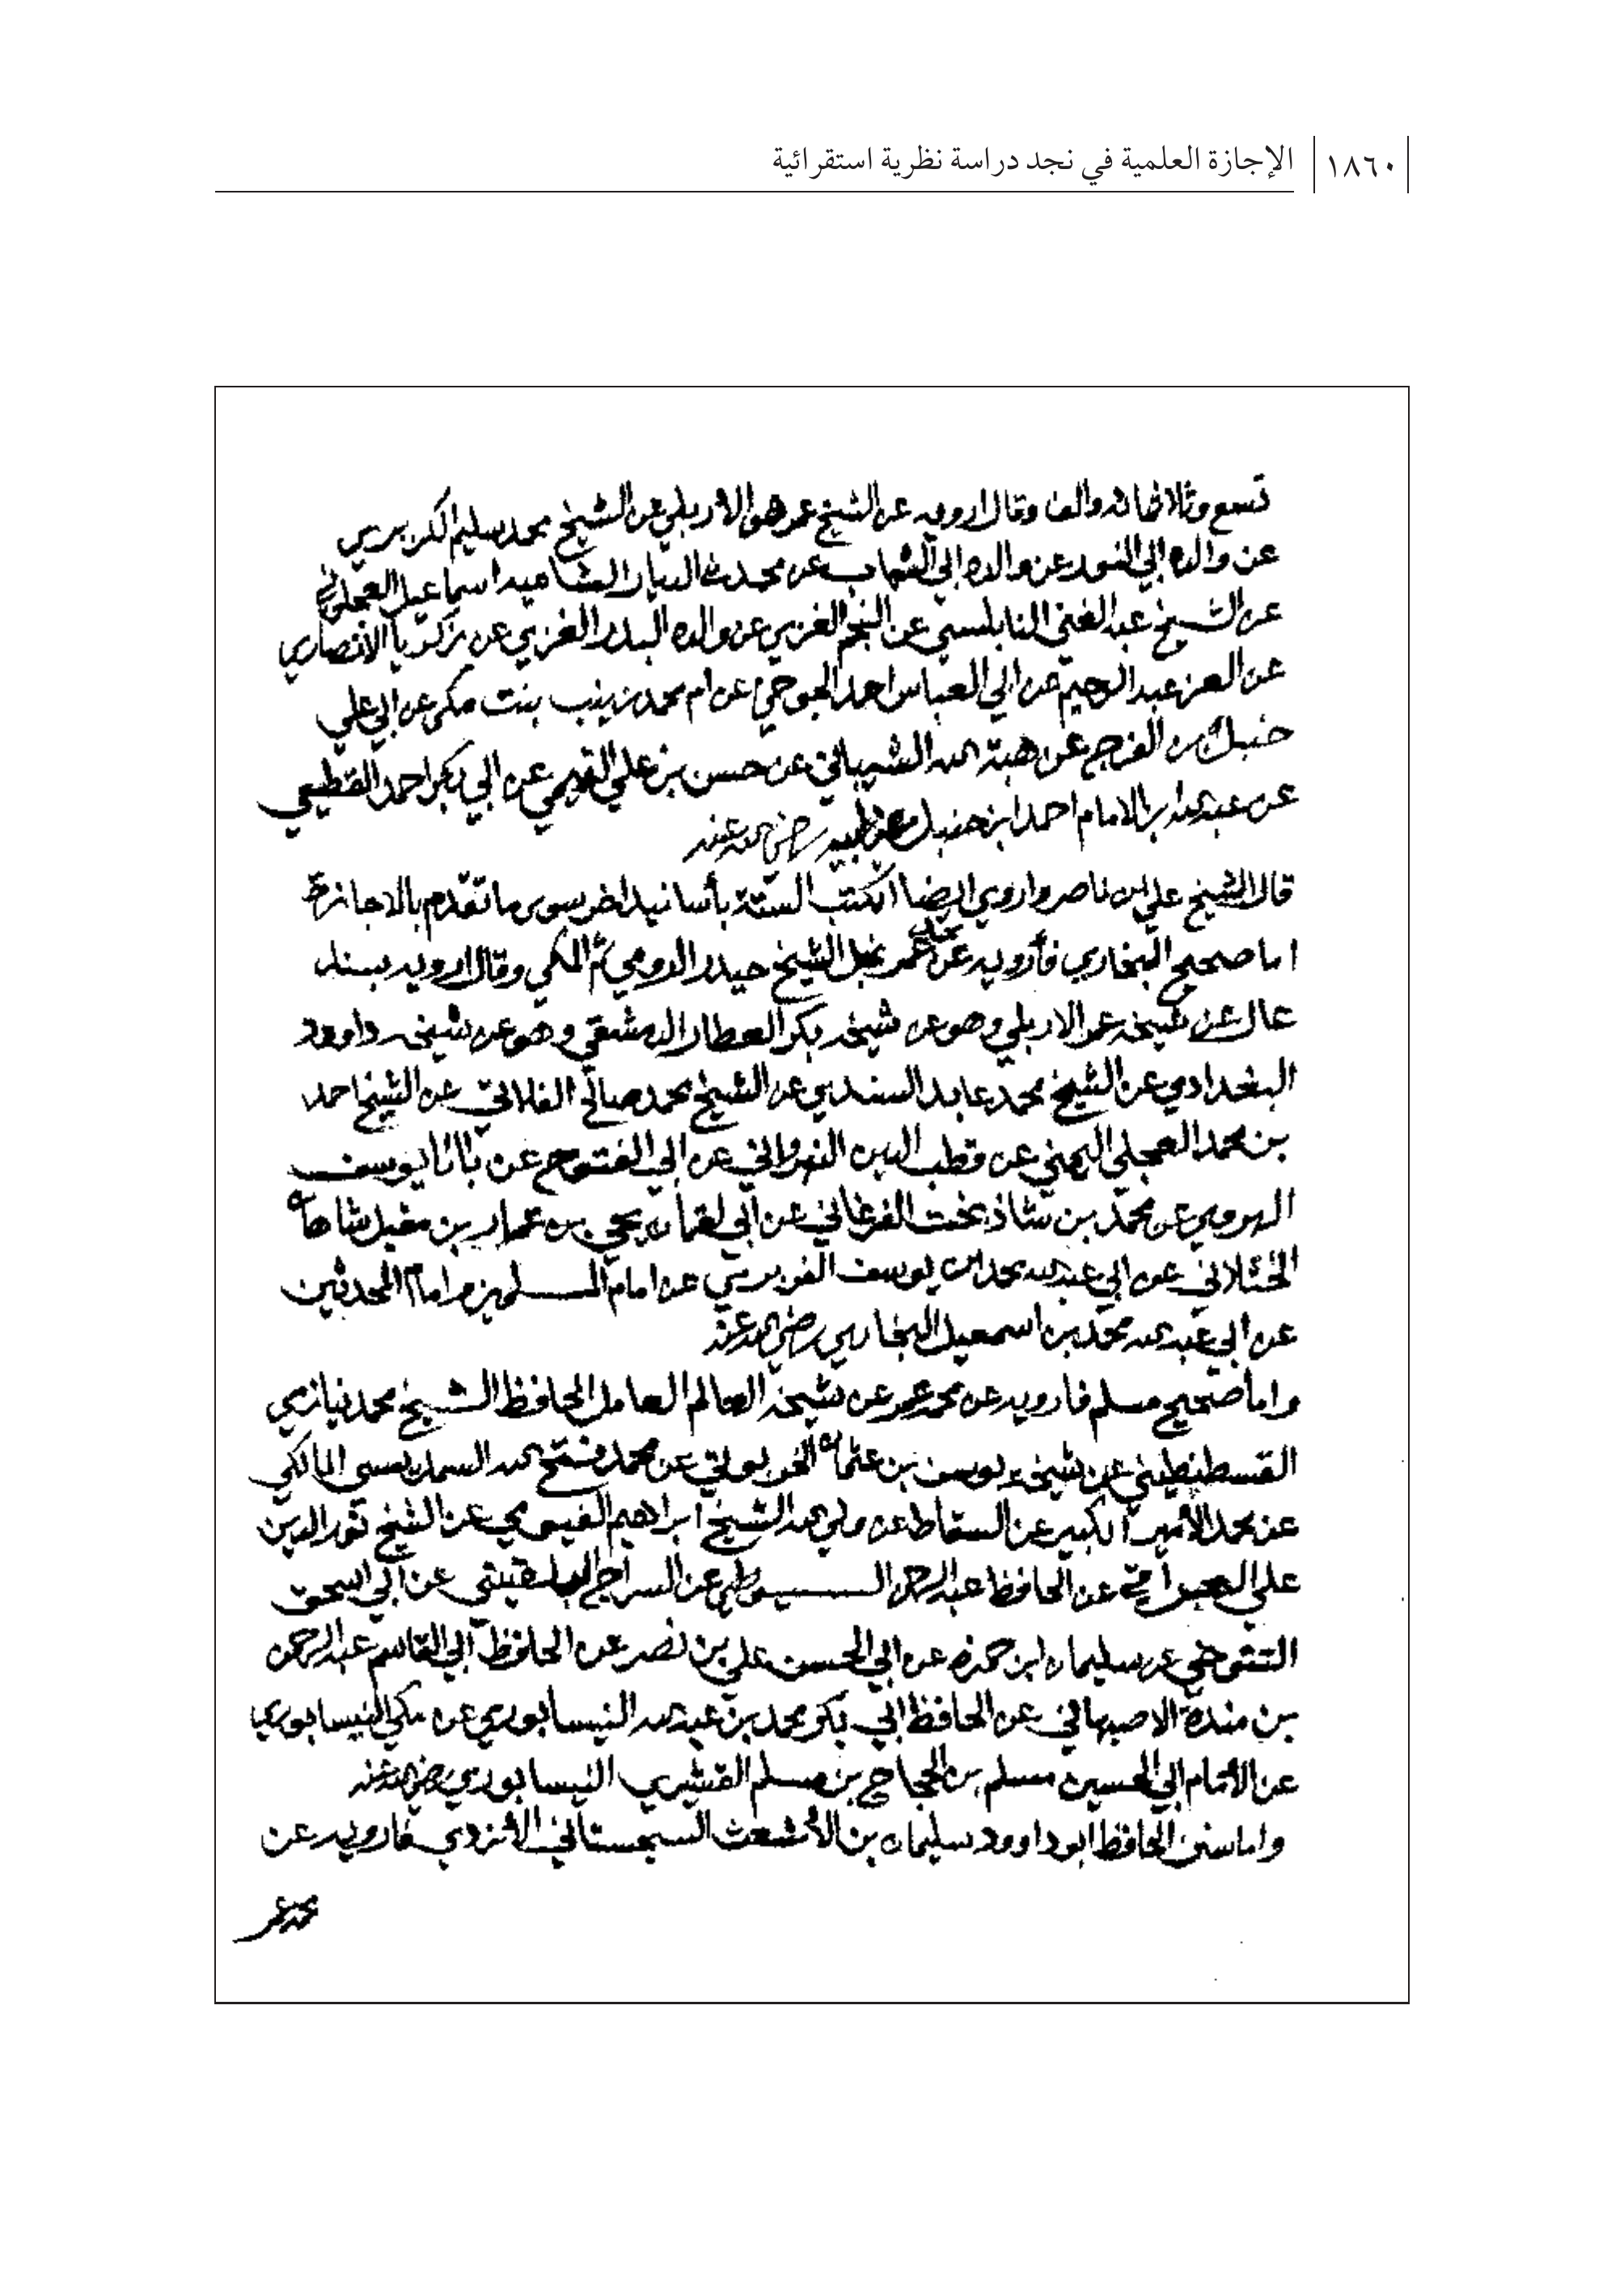 ١٨٦٠ الإجازة العلمية في نجد دراسة نظرية استقرائية
تسع وثلاثمائه والف وقال ارويه عن الشيخ عمر هو الاربلي عن الشيخ محمد سليم الكزبري
عن والده ابي النور عن والده ابي الشهاب عن محدث الديار الشاميه اسماعيل العجلوني
عن الشيخ عبد الغني النابلسي عن النجم الغزي عن والده البدر الغزي عن زكريا الانصاري
عن العز عبد الرحيم عن ابي العباس احمد الجوخي عن ام محمد زينب بنت مكي عن ابي علي
حنبل بن الفرج عن هبة الله الشيباني عن حسن بن علي التميمي عن ابي بكر احمد القطيعي
عن عبد الله ابن الامام احمد ابن حنبل عن ابيه رضي الله عنه
قال الشيخ علي بن ناصر واروي ايضا الكتب الستة بأسانيد اخر سوى ما تقدم بالاجازة
اما صحيح البخاري فأرويه عن محمد عمر نجل الشيخ حيدر الرومي ثم المكي وقال ارويه بسند
عال عن شيخه عمر الاربلي وهو عن شيخه بكر العطار الدمشقي وهو عن شيخه داوود
البغدادي عن الشيخ محمد عابد السندي عن الشيخ محمد صالح الفلاني عن الشيخ احمد
بن محمد العجلي اليمني عن قطب الدين النهرواني عن ابي الفتوح عن بابا يوسف
الهروي عن محمد بن شاذ بخت الفرغاني عن أبي لقمان يحي بن عمار بن مقبل شاهان
الختلاني عن ابي عبد الله محمد ابن يوسف الفربري عن امام المسلمين وامام المحدثين
عن ابي عبد الله محمد بن اسمعيل البخاري رضي الله عنه
واما صحيح مسلم فارويه عن محمد عمر عن شيخه العالم العامل الحافظ الشيخ محمد نيازي
القسطنطيني عن شيخه يوسف بن عثمان الخربوتي عن محمد فتح الله السمديسي المالكي
عن محمد الأمير الكبير عن السقاط عن ولي الله الشيخ ابراهيم الفيومي عن الشيخ نور الدين
علي القرافي عن الحافظ عبد الرحمن السيوطي عن السراج البلقيني عن ابي اسحق
التنوخي عن سليمان ابن حمزه عن ابي الحسن علي بن نصر عن الحافظ ابي القاسم عبد الرحمن
بن مندة الاصبهاني عن الحافظ ابي بكر محمد بن عبد الله النيسابوري عن مكي النيسابوري
عن الأمام ابي الحسين مسلم بن الحجاج بن مسلم القشيري النيسابوري رضي الله عنه
واما سنن الحافظ ابو داوود سليمان بن الأشعث السجستاني الأزدي فارويه عن
محمد عمر